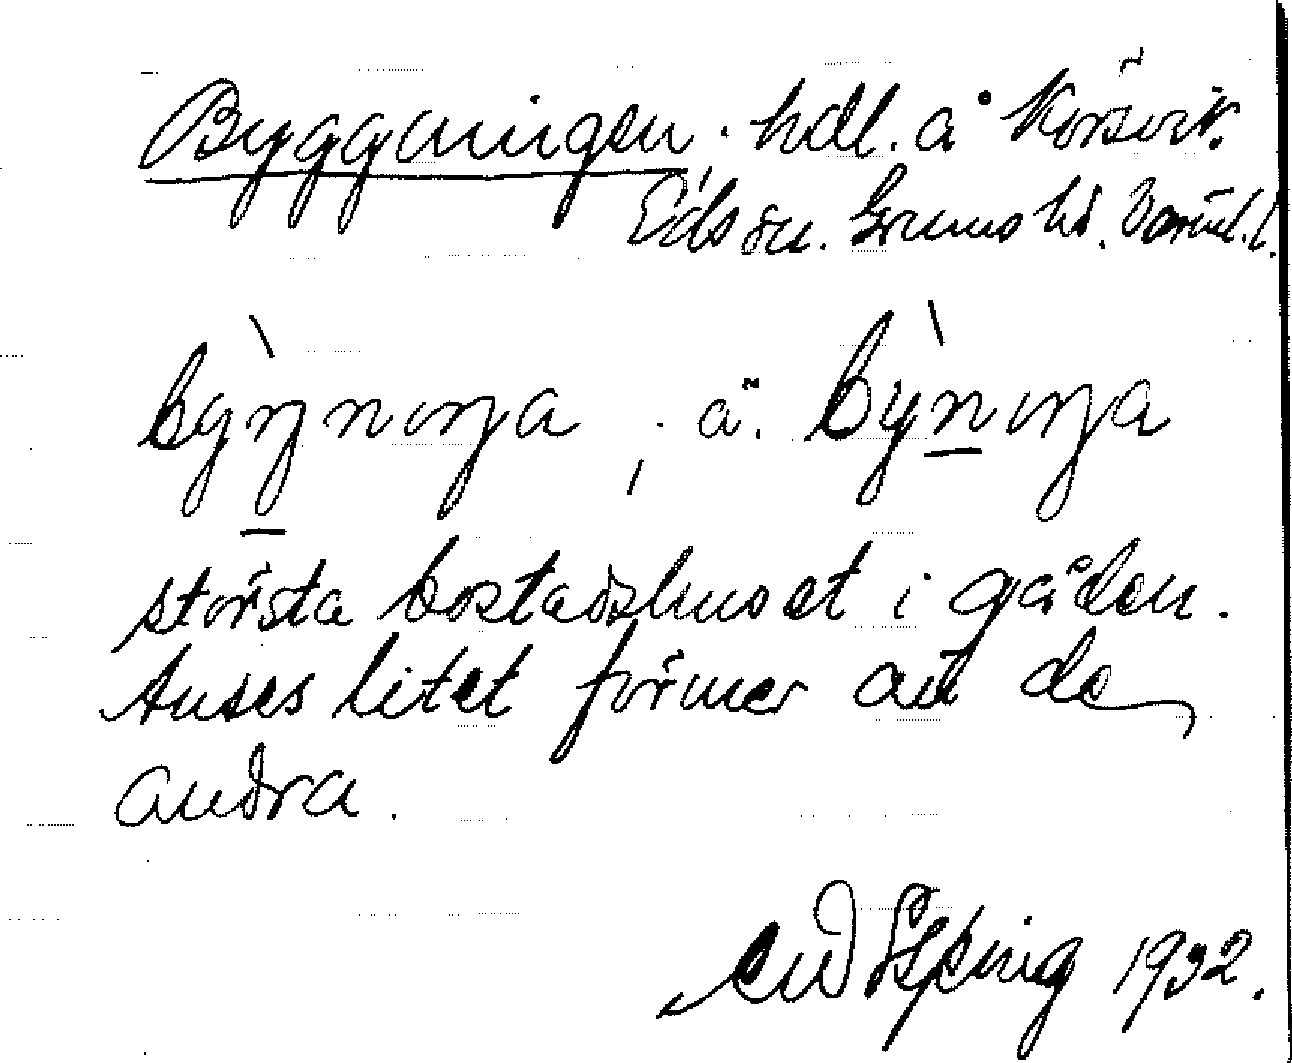 Byggningen. hdl. å Korsvik.
Eds sn. Grums hd. Värml. l.
bỳŋnıŋa, ä. bỳnıŋa
största bostadshuset i gården.
Anses litet förmer än de
andra.
1932.